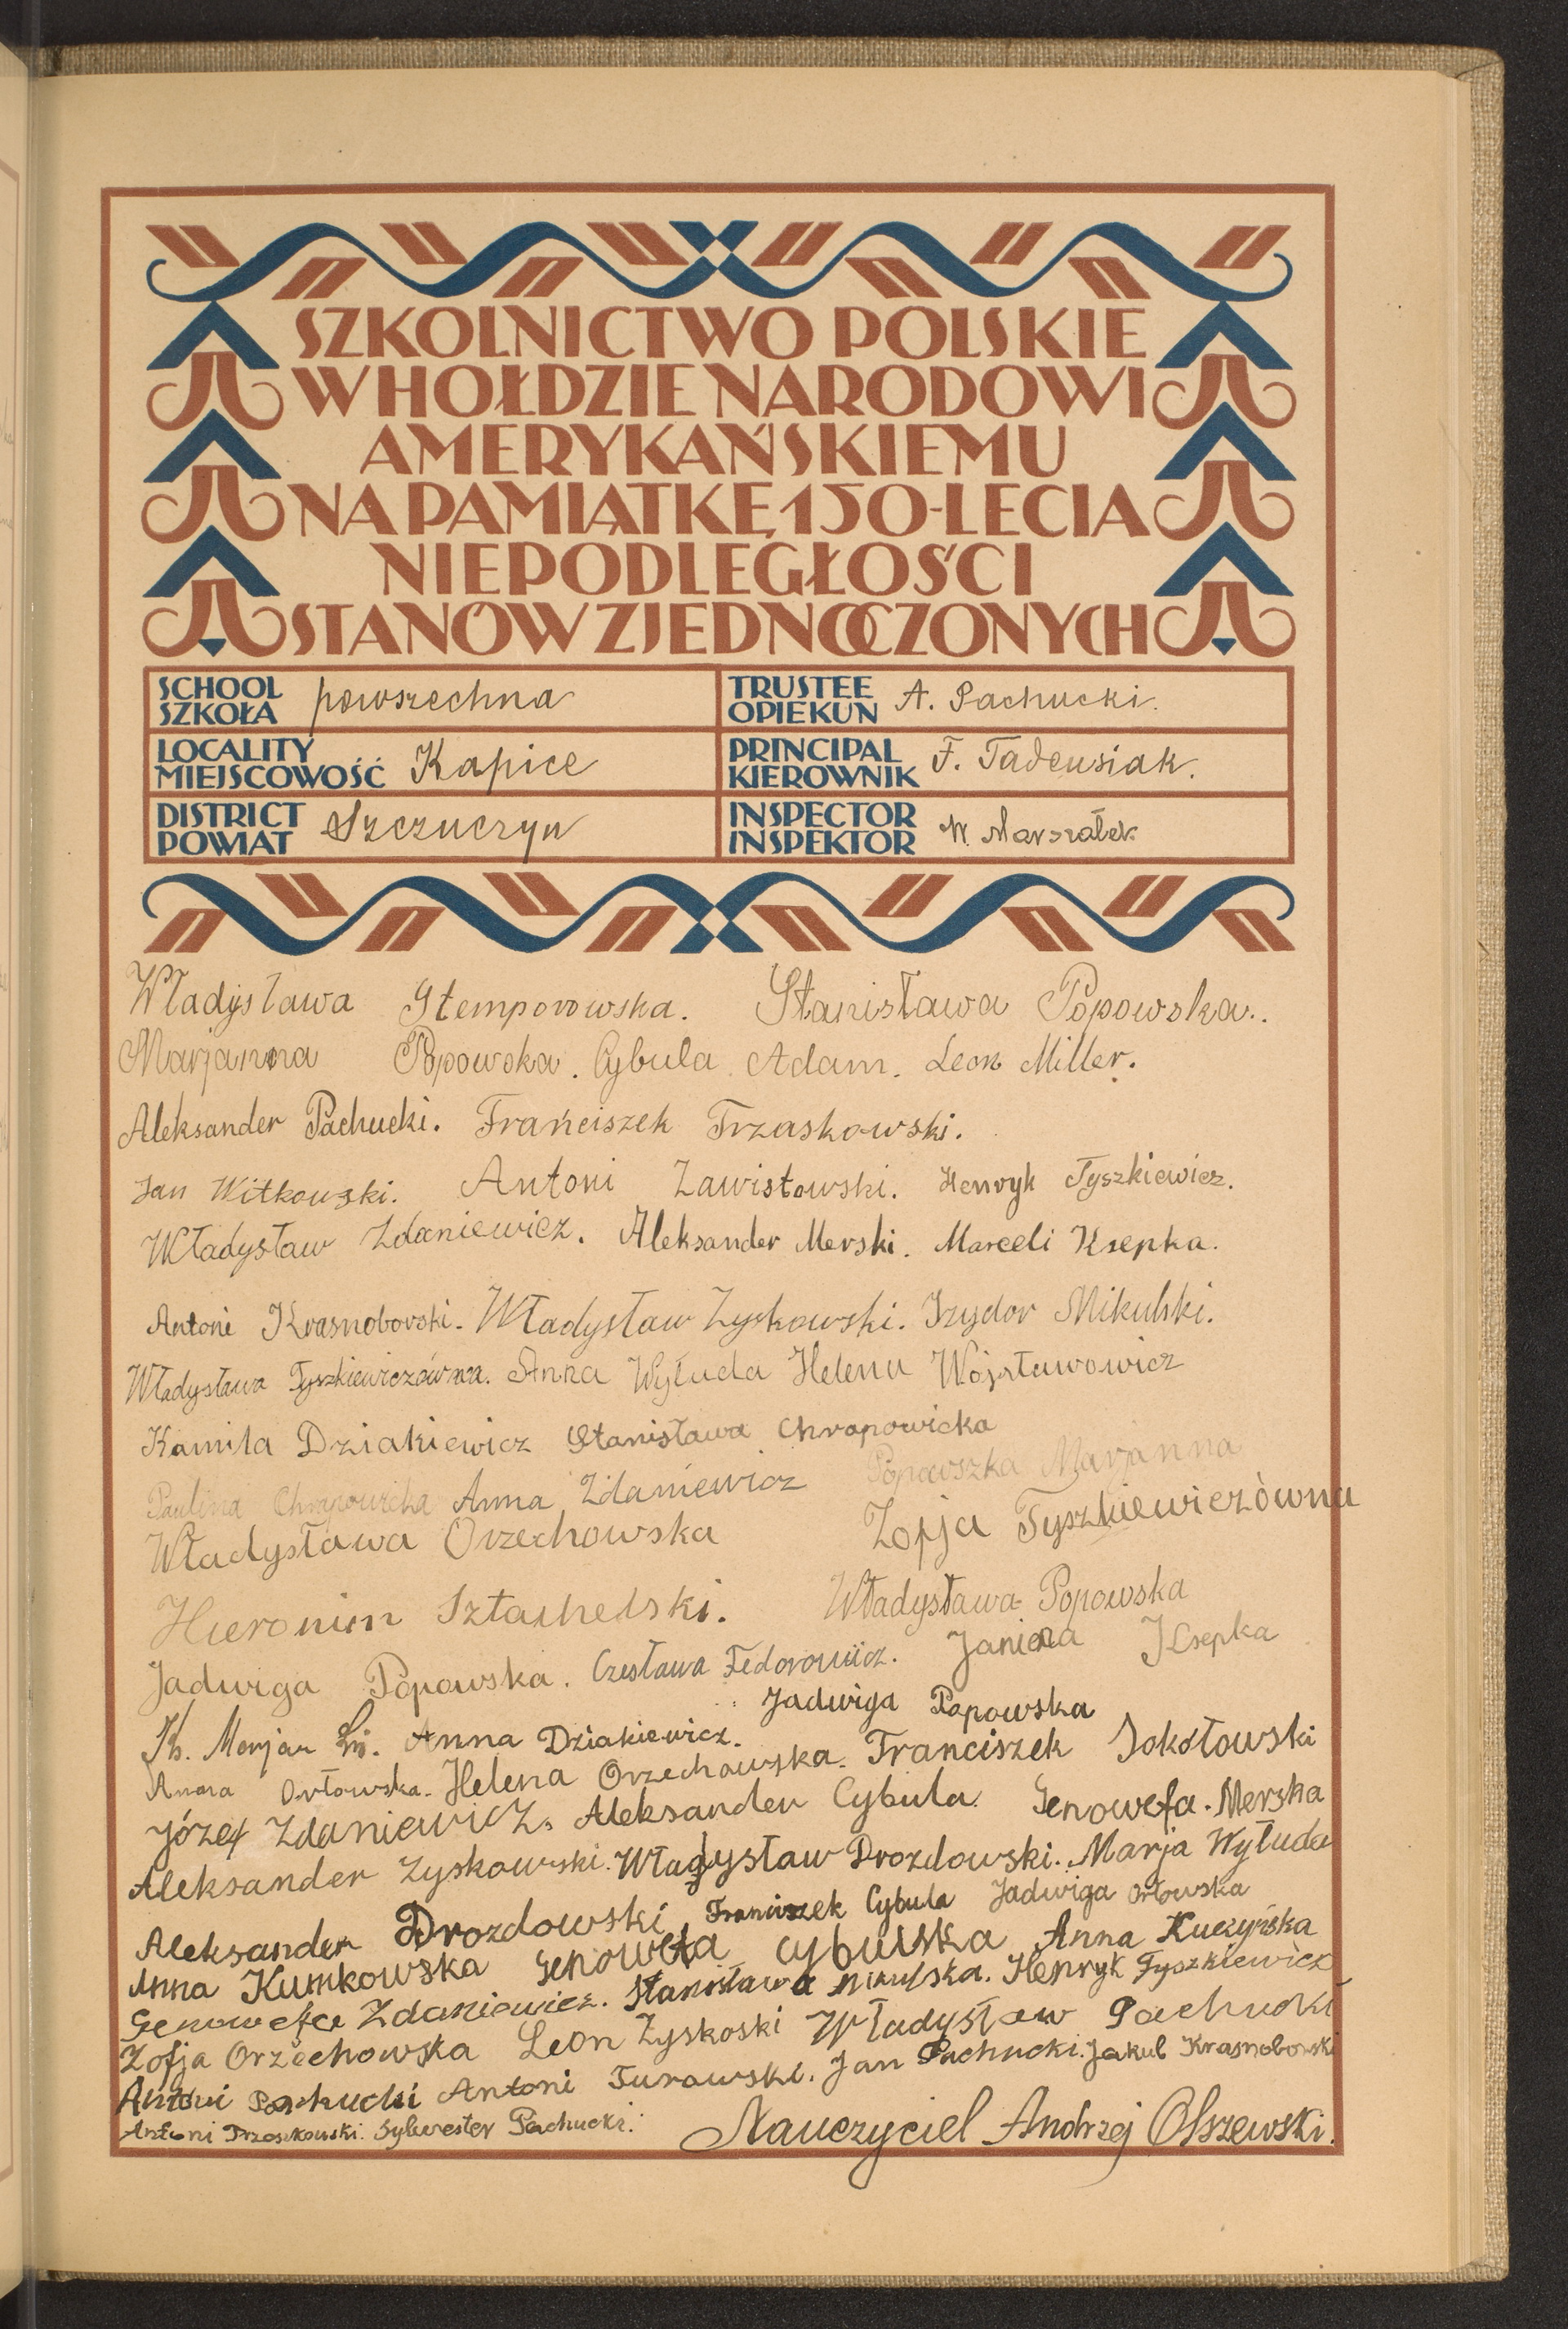 SZKOLNICTWO POLSKIE
W HOŁDZIE NARODOWI
AMERYKAŃSKIEMU
NA PAMIĄTKĘ 150-LECIA
NIEPODLEGŁOŚCI
STANÓW ZJEDNOCZONYCH
SCHOOL SZKOŁA powszechna
TRUSTEE OPIEKUN A. Pachucki.
LOCALITY MIEJSCOWOŚĆ Kapice
PRINCIPAL KIEROWNIK F. Tadeusiak.
DISTRICT POWIAT Szczuczyn
INSPECTOR INSPEKTOR W. Marszałek
Władysława Stemporowska. Stanisława Popowska..
Marjanna Popowska. Cybula Adam. Leon Miller.
Aleksander Pachucki. Frańciszek Trzaskowski.
Jan Witkowski. Antoni Zawistowski. Henryk Tyszkiewicz.
Władysław Zdaniewicz. Aleksander Merski. Marceli Ksepka.
Antoni Krasnoborski. Władysław Zyskowski. Izydor Mikulski.
Władysława Tyszkiewiczówna. Anna Wyłuda Helena Wojsławowicz
Kamila Dziakiewicz Stanisława Chrapowicka
Paulina Chrapowicka Anna Zdaniewicz Popowszka Marjanna
Władysława Orzechowska Zofja Tyszkiewiczòwna
Hieronim Sztachelski. Władysława Popowska
Jadwiga Popowska. Czesława Fedorowicz. Janina Ksepka
Ks. Marjan Jadwiga Popowska
Anna Dziakiewicz.
Anna Orłowska. Helena Orzechowska. Franciszek Sokołowski
Józef Zdaniewicz. Aleksander Cybula. Genowefa. Merska
Aleksander Zyskowski. Władysław Drozdowski. Marja Wyłuda
Aleksander Drozdowski Franciszek Cybula Jadwiga Orłowska
Anna Kumkowska Genowefa Cybulska Anna Kuczyńska
Genowefa Zdaniewicz. Stanisława Mikulska. Henryk Tyszkiewicz
Zofja Orzechowska Leon Zyskoski Władysław Pachucki
Antoni Pachucki Antoni Turowski. Jan Pachucki. Jakub Krasnoborski
Antoni Trzaskowski. Sylwester Pachucki. Nauczyciel Andrzej Olszewski.